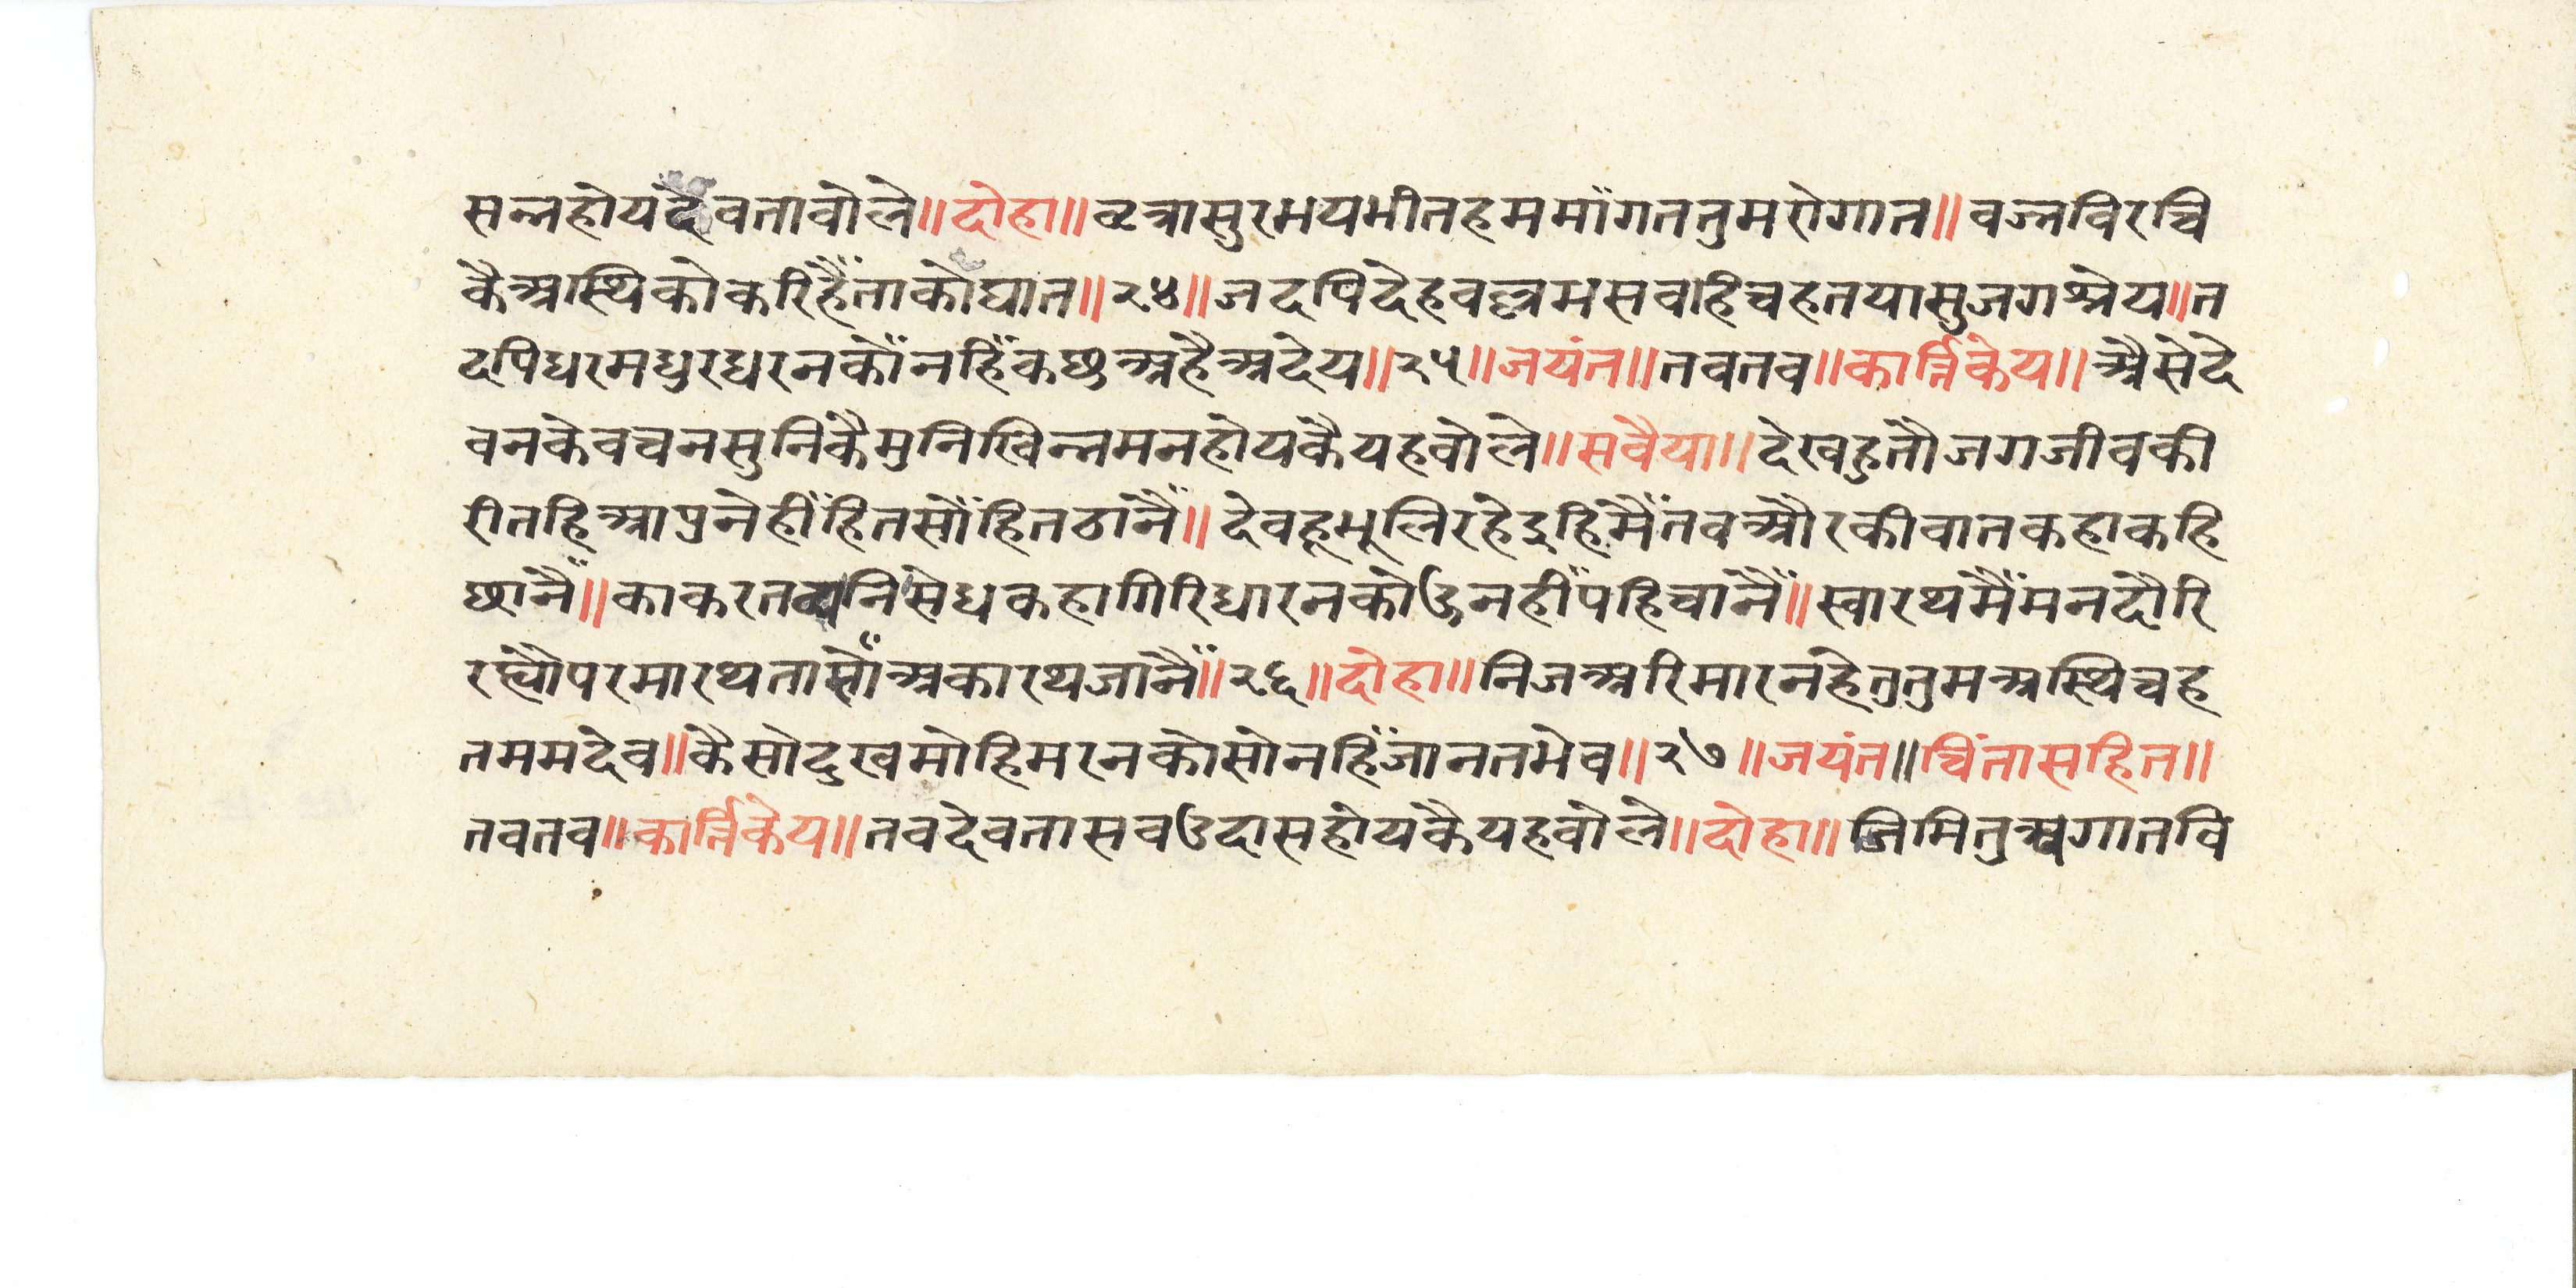 सन्नहोयदेवतावोले॥दोहा॥वृत्रासुरभयभीतहममाँगततुमरोगात॥वज्रविरचि
कैअस्थिकोकरिहैँताकोघात॥२४॥जदपिदेहवल्लभसवहिचहतयासुजगश्रेय॥त
दपिधरमधुरधरनकोँनहिँकछुअहैअदेय॥२५॥जयंत॥तवतव॥कार्त्तिकेय॥अैसेदे
वनकेवचनसुनिकैमुनिखिन्नमनहोयकैयहवोले॥सवैया॥देखहुतौजगजीवकी
रीतहिआपुनेहीँहितसोँहितठानैँ॥देवहूभूलिरहेइहिमैँतवऔरकीवातकहाकहि
छानैँ॥काकरतव्यनिसेधकहागिरिधारनकोऊनहीँपहिचानैँ॥स्वारथमैँमनदौरि
रह्यौपरमारथतासोँअकारथजानैँ॥२६॥दोहा॥निजअरिमारनहेतुतुमअस्थिचह
तममदेव॥कैसोदुखमोहिमरनकोसोनहिँजानतभेव॥२७॥जयंत॥चिंतासहित॥
तवतव॥कार्त्तिकेय॥तवदेवतासवउदासहोयकैयहवोले॥दोहा॥जिमितुअगातवि